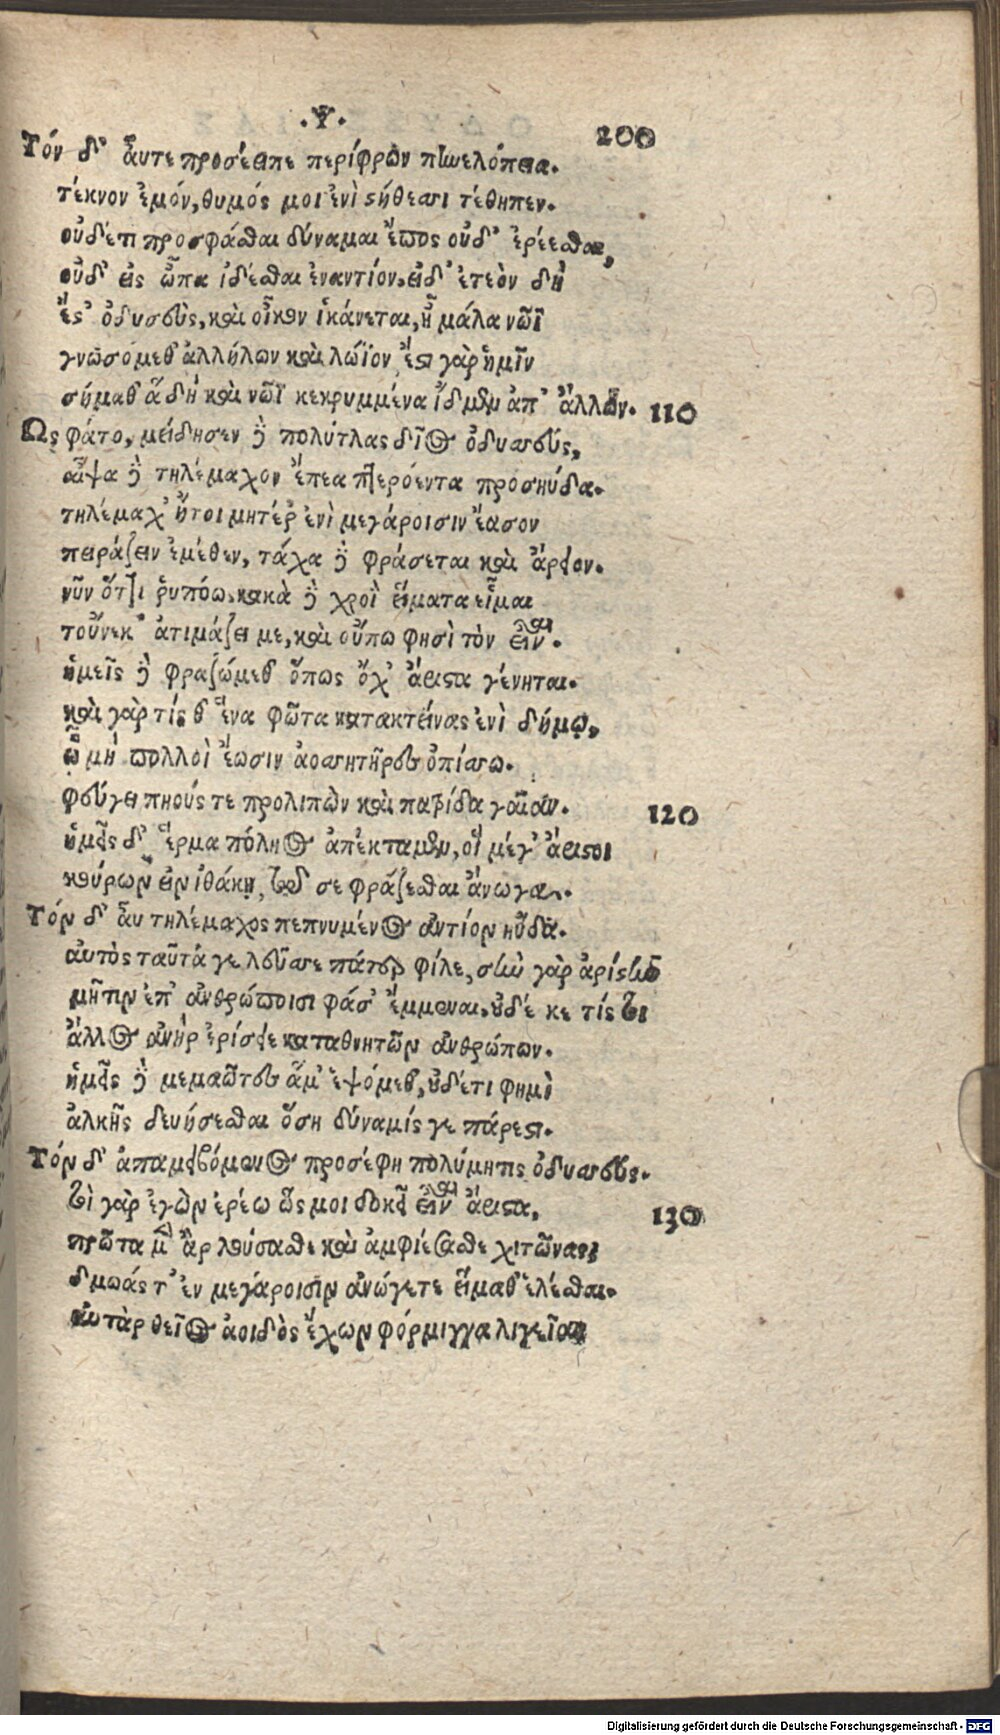 .Ψ. 200
Τόν δ' αὖτε προσέειπε περίφρων πηνελόπεια.
τέκνον ἐμόν, θυμός μοι ἐνὶ στήθεσσι τέθηπεν.
οὐδέ τι προσφάσθαι δύναμαι ἔπος οὐδ' ἐρέεσθαι,
οὐδ' εἰς ὦπα ἰδέσθαι ἐναντίον. εἰ δ' ἐτεὸν δὴ
ἔστ' ὀδυσεὺς, καὶ οἶκον ἱκάνεται, ἦ μάλα νῶϊ
γνωσόμεθ' ἀλλήλων καὶ λώϊον, ἔστι γὰρ ἡμῖν
σήμαθ' ἃ δὴ καὶ νῶϊ κεκρυμμένα ἴδμεν ἀπ' ἄλλων. 110
Ὣς φάτο, μείδησεν δὲ πολύτλας δῖος ὀδυσσεύς,
αἶψα δὲ τηλέμαχον ἔπεα πτερόεντα προσηύδα.
τηλέμαχ' ἤτοι μητέρ' ἐνὶ μεγάροισιν ἔασον
πειράζειν ἐμέθεν, τάχα δὲ φράσεται καὶ ἄρειον.
νῦν ὅττι ῥυπόω, κακὰ δὲ χροῒ εἵματα εἷμαι
τοὔνεκ' ἀτιμάζει με, καὶ οὔπω φησὶ τὸν εἶναι.
ἡμεῖς δὲ φραζώμεθ' ὅπως ὄχ' ἄριστα γένηται.
καὶ γὰρ τίς θ' ἕνα φῶτα κατακτείνας ἐνὶ δήμῳ,
ᾧ μὴ πολλοὶ ἔωσιν ἀοσσητῆρες ὀπίσσω.
φεύγει πηούς τε προλιπὼν καὶ πατρίδα γαῖαν. 120
ἡμεῖς δ' ἕρμα πόληος ἀπέκταμεν, οἳ μέγ' ἄριστοι
κούρων εἰν ἰθάκῃ, τὰ δέ σε φράζεσθαι ἄνωγα.
Τόν δ' αὖ τηλέμαχος πεπνυμένος ἀντίον ηὔδα.
αὐτὸς ταῦτά γε λεῦσσε πάτερ φίλε, σὴν γὰρ ἀρίστην
μῆτιν ἐπ' ἀνθρώποισι φάσ' ἔμμεναι, οὐδέ κε τίς τοι
ἄλλος ἀνὴρ ἐρίσειε καταθνητῶν ἀνθρώπων.
ἡμεῖς δὲ μεμαῶτες ἅμ' ἑψόμεθ', οὐδέ τι φημὶ
ἀλκῆς δευήσεσθαι ὅση δύναμίς γε πάρεστι.
Τόν δ' ἀπαμειβόμενος προσέφη πολύμητις ὀδυσσεύς.
τοὶ γὰρ ἐγὼν ἐρέω ὥς μοι δοκεῖ εἶναι ἄριστα, 130
πρῶτα μὲν ἂρ λούσασθε καὶ ἀμφιέσασθε χιτῶνας,
δμωάς τ' ἐν μεγάροισιν ἀνώγετε εἵμαθ' ἑλέσθαι.
αὐτὰρ θεῖος ἀοιδὸς ἔχων φόρμιγγα λιγεῖαν
Digitalisierung gefördert durch die Deutsche Forschungsgemeinschaft - DFG